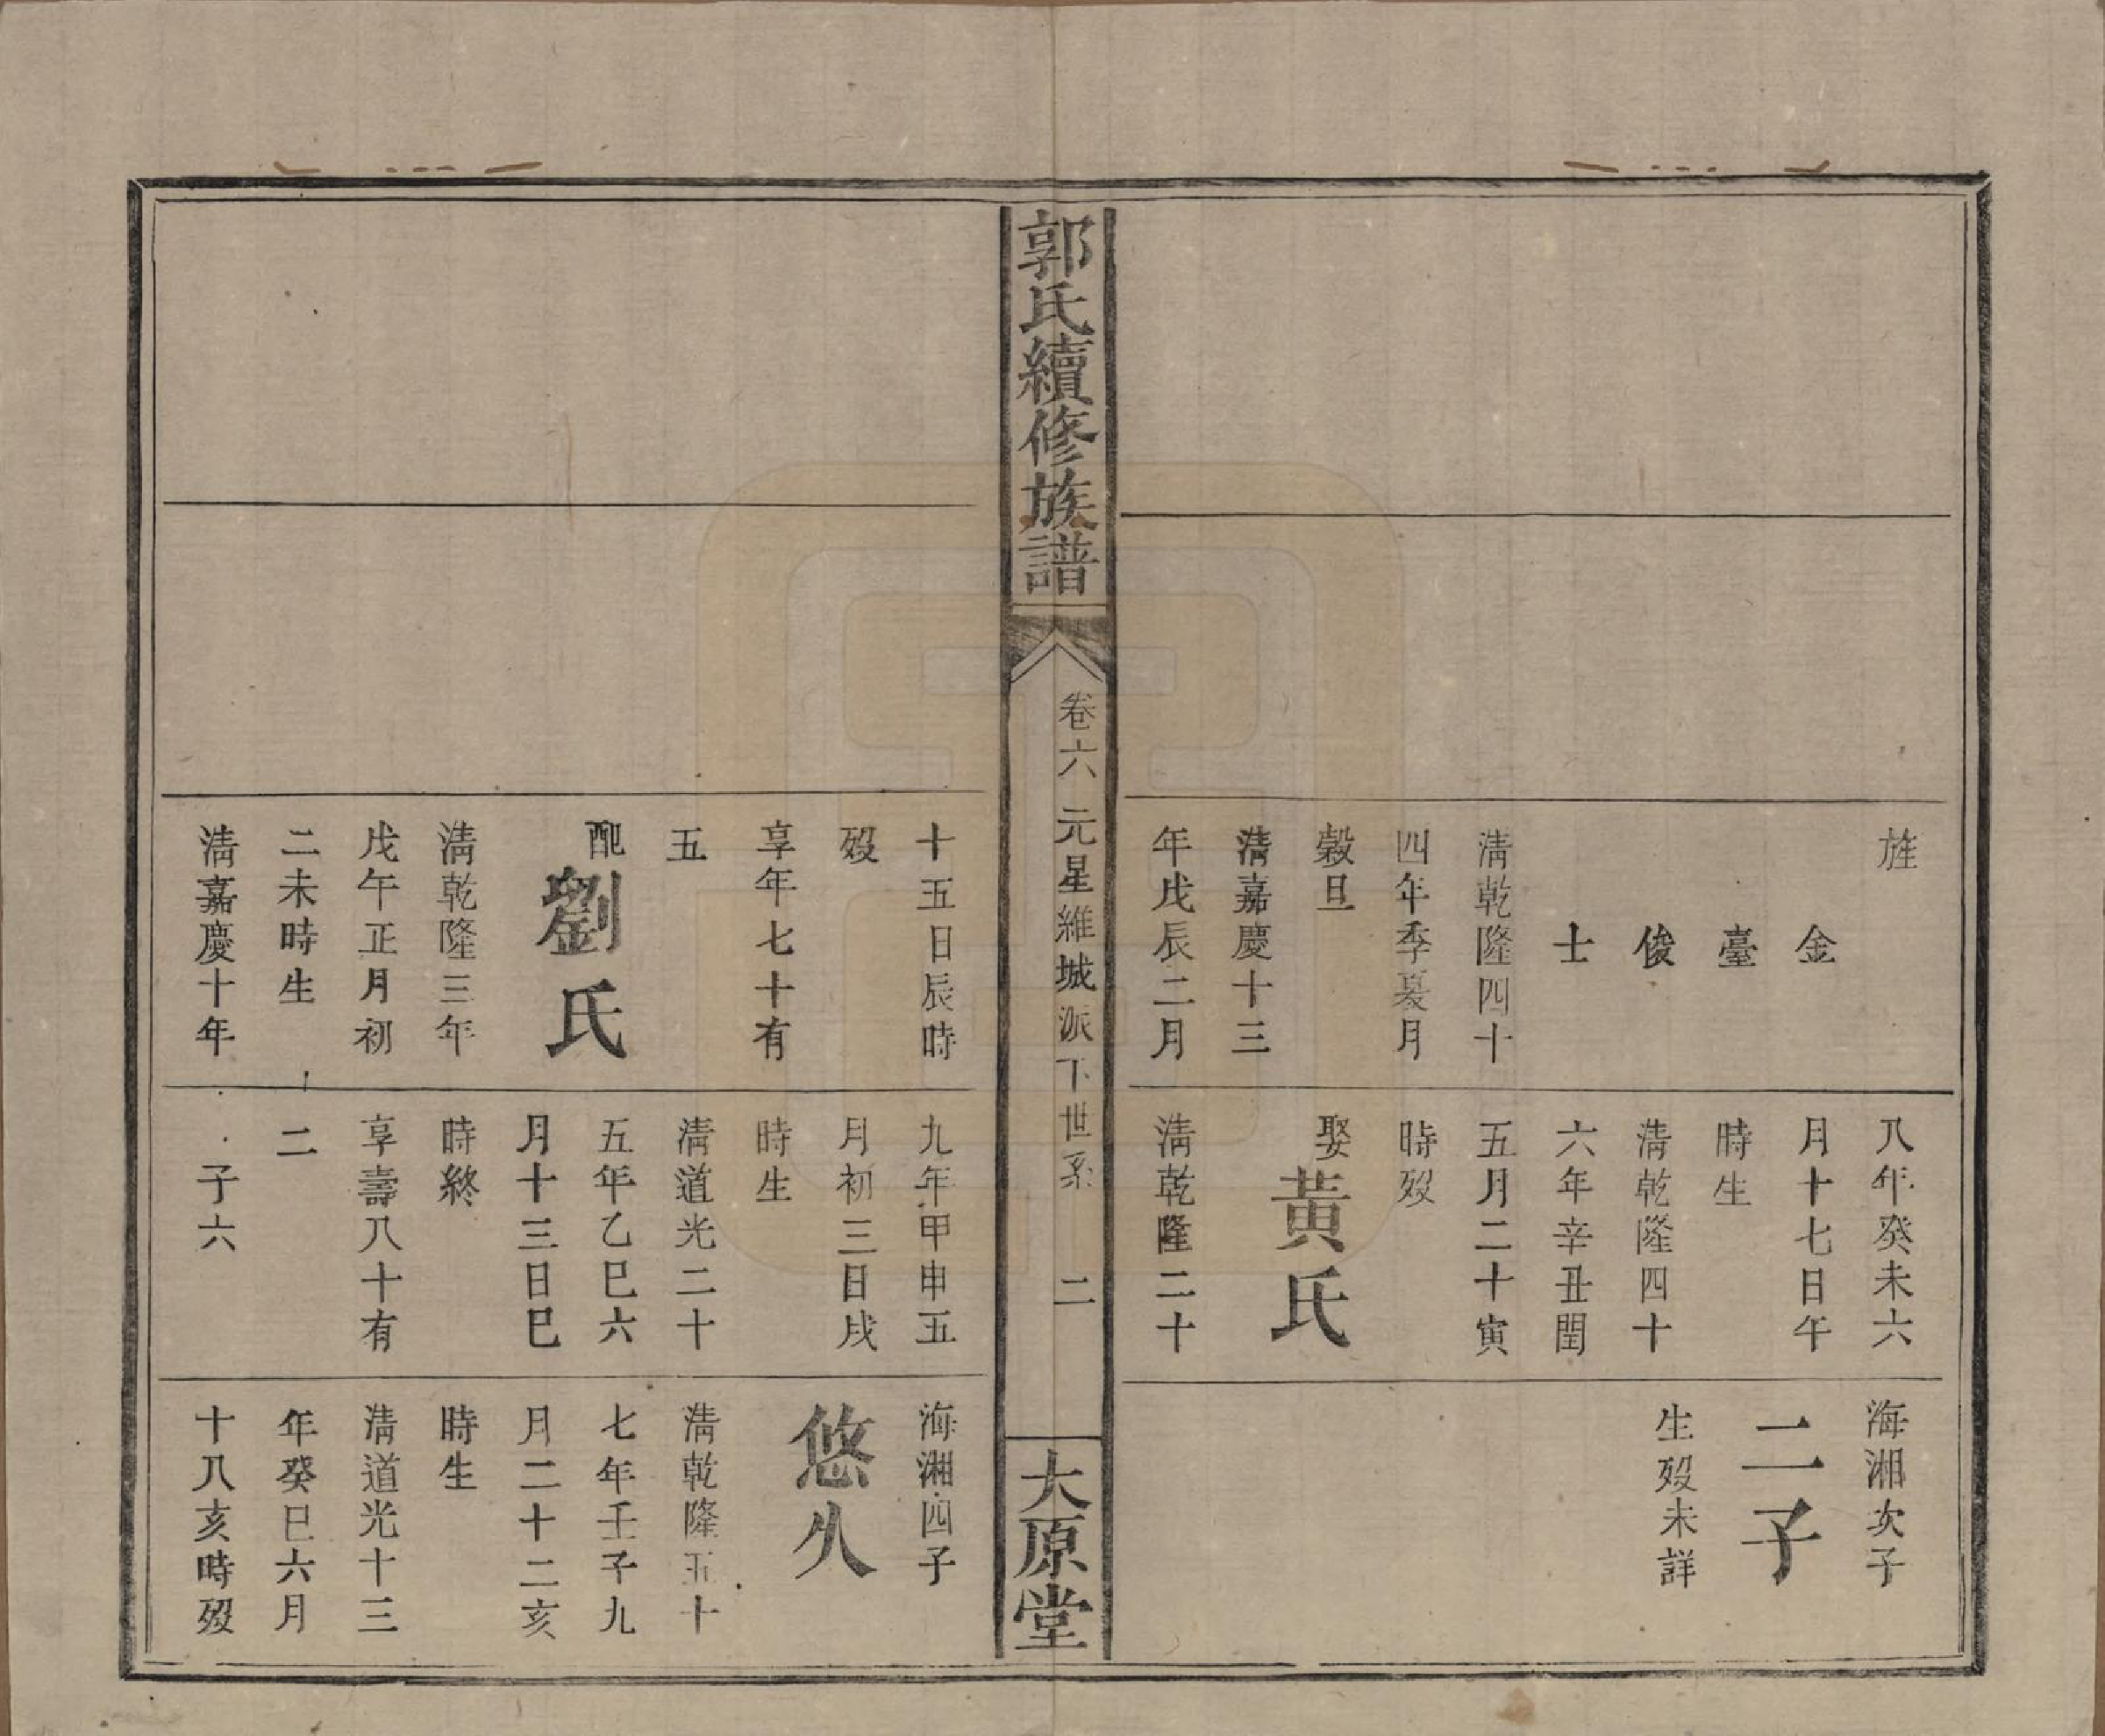 旌
金
臺
俊
士
淸乾隆四十
四年季夏月
穀旦
淸嘉慶十三
年戊辰二月
八年癸未六
月十七日午
時生
淸乾隆四十
六年辛丑閏
五月二十寅
時歿
娶黃氏
淸乾隆二十
海湘次子
二子
生歿未詳
郭氏續修族譜
卷六 元星維城派下世系 二
大原堂
十五日辰時
歿
享年七十有
五
配劉氏
淸乾隆三年
戊午正月初
二未時生
淸嘉慶十年
九年甲申五
月初三日戌
時生
淸道光二十
五年乙巳六
月十三日巳
時終
享壽八十有
二
子六
海湘四子
悠久
淸乾隆五十
七年壬子九
月二十二亥
時生
淸道光十三
年癸巳六月
十八亥時歿